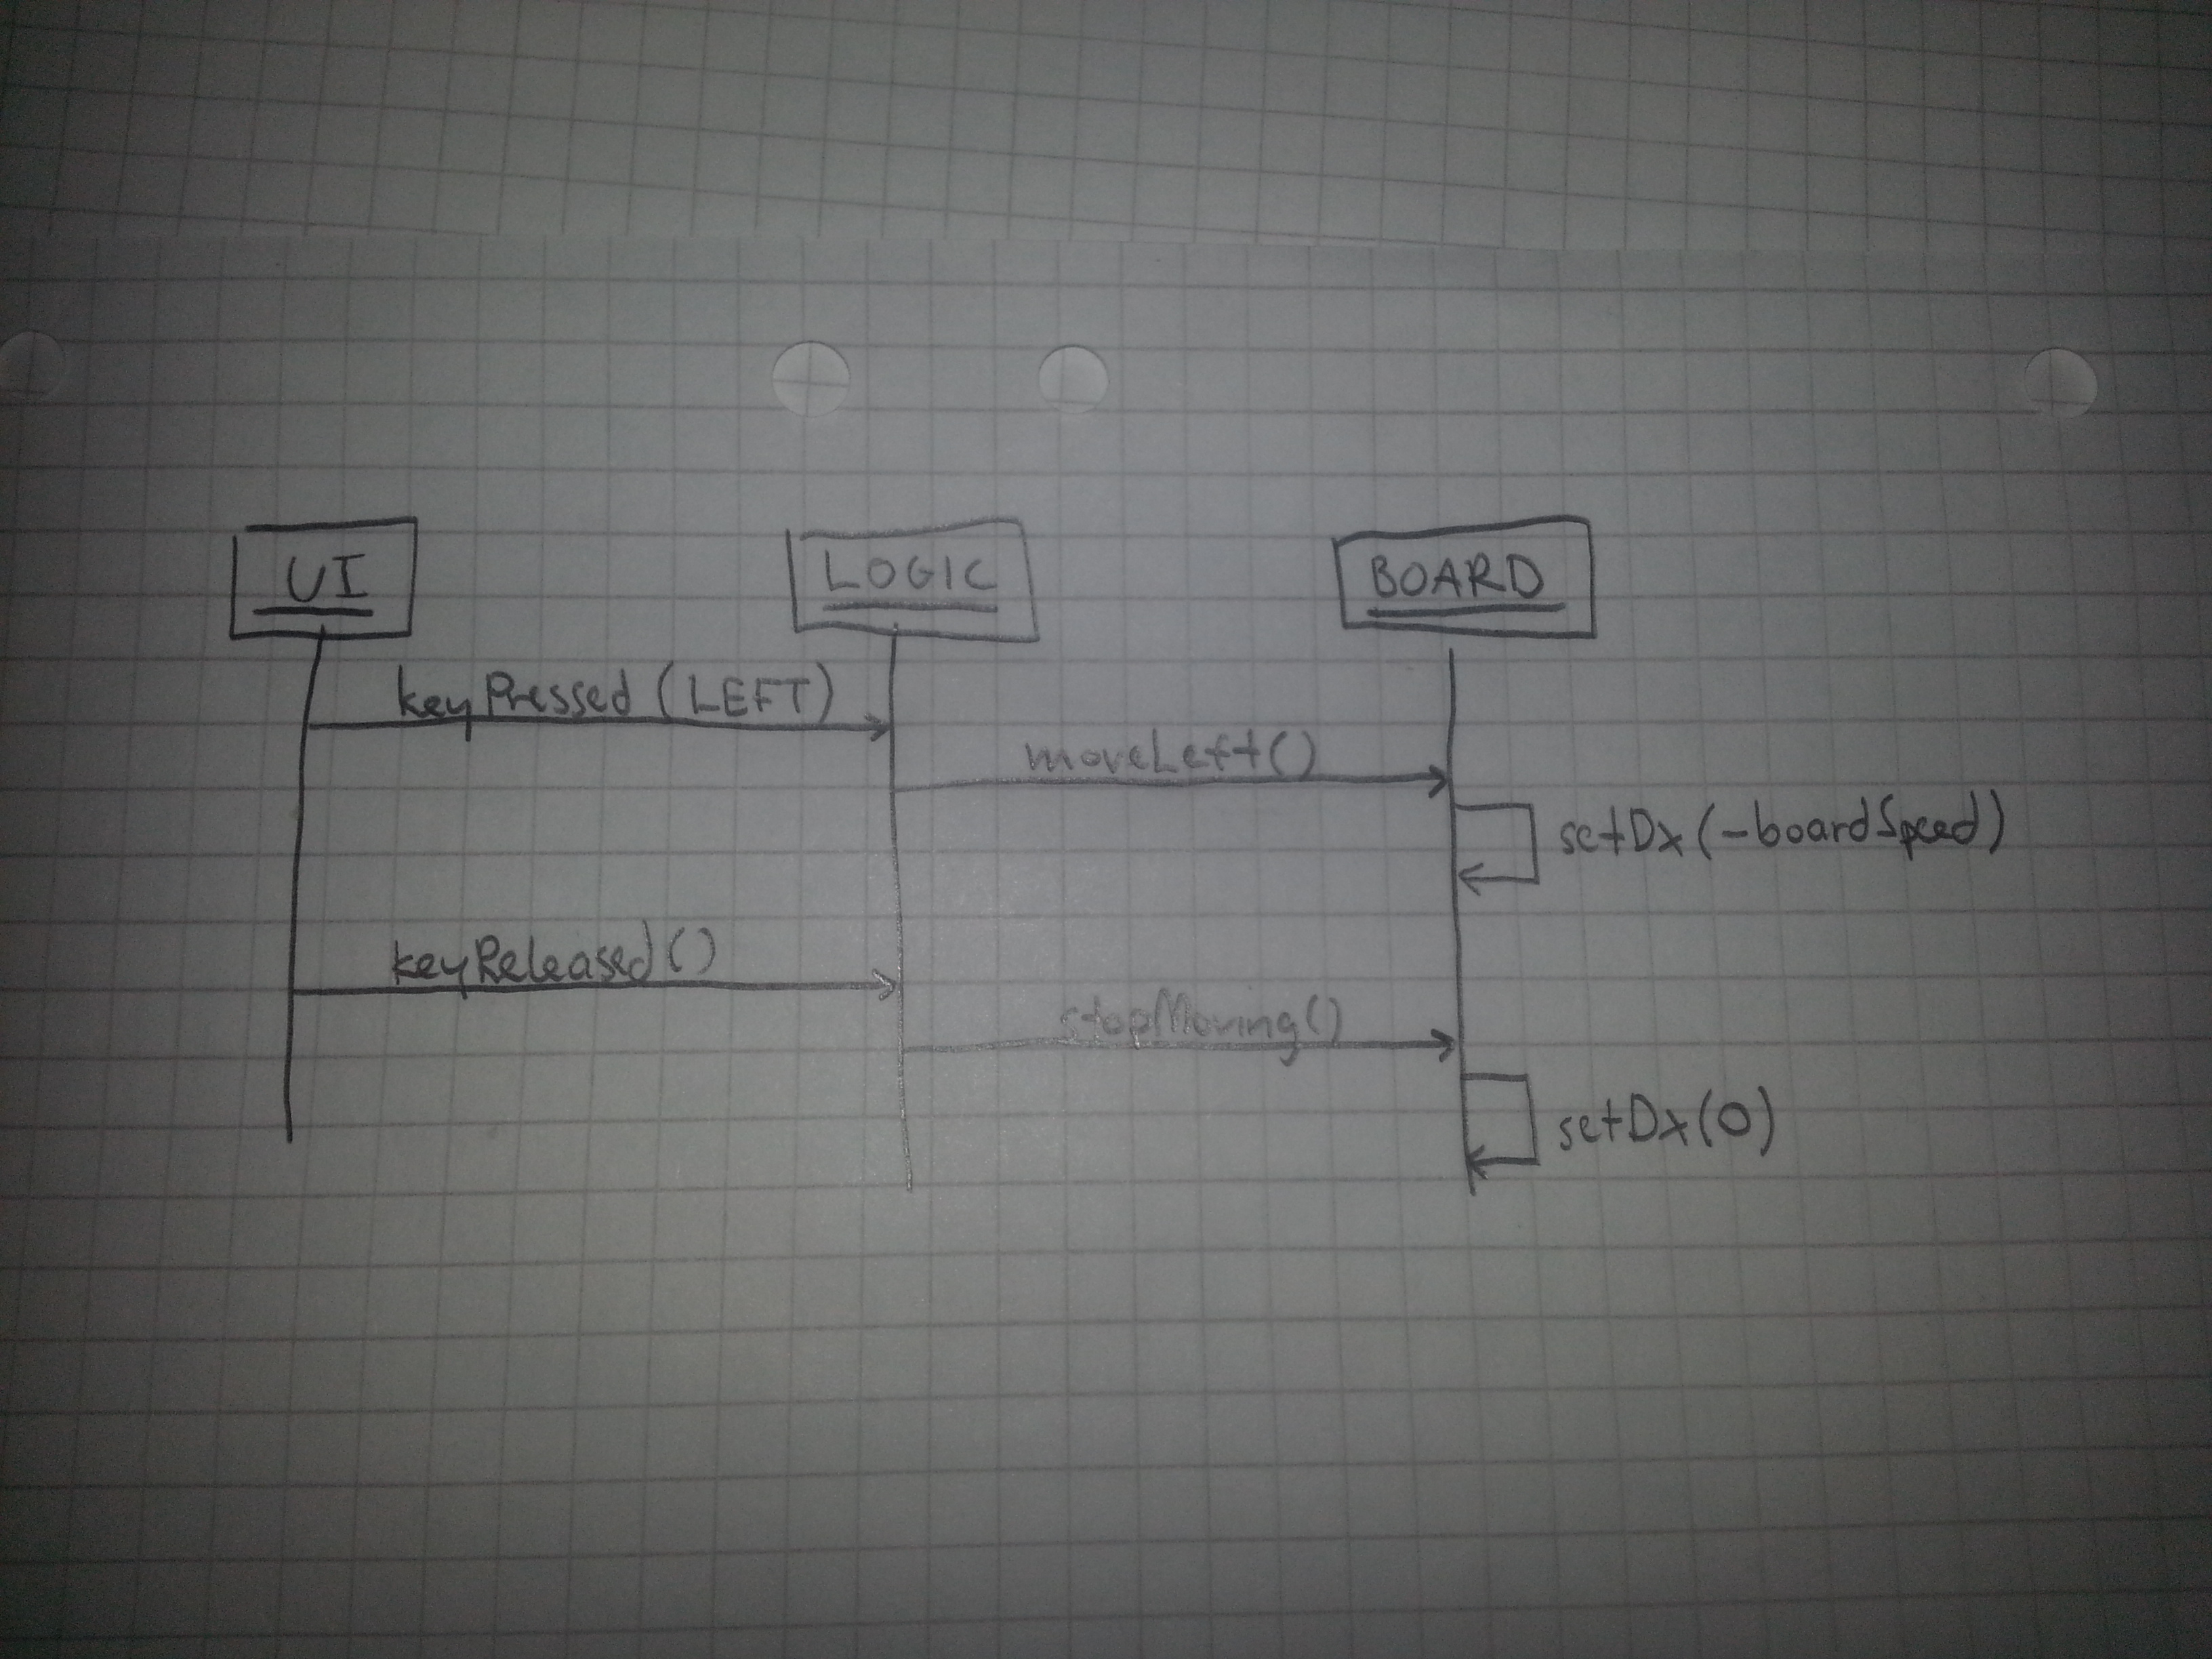 UI
LOGIC
BOARD
keyPressed (LEFT)
moveLeft()
setDx(-boardSpeed)
keyReleased()
stopMoving()
setDx(0)